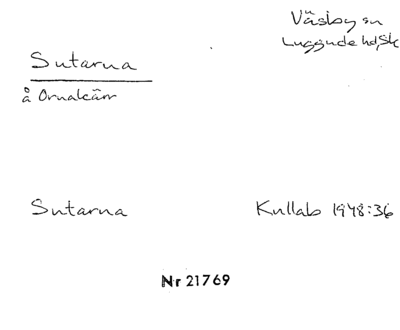 Väsby sn
Luggude hd, Sk
Sutarna
å Ornakärr
Sutarna
Kullab 1948:36
Nr 21769